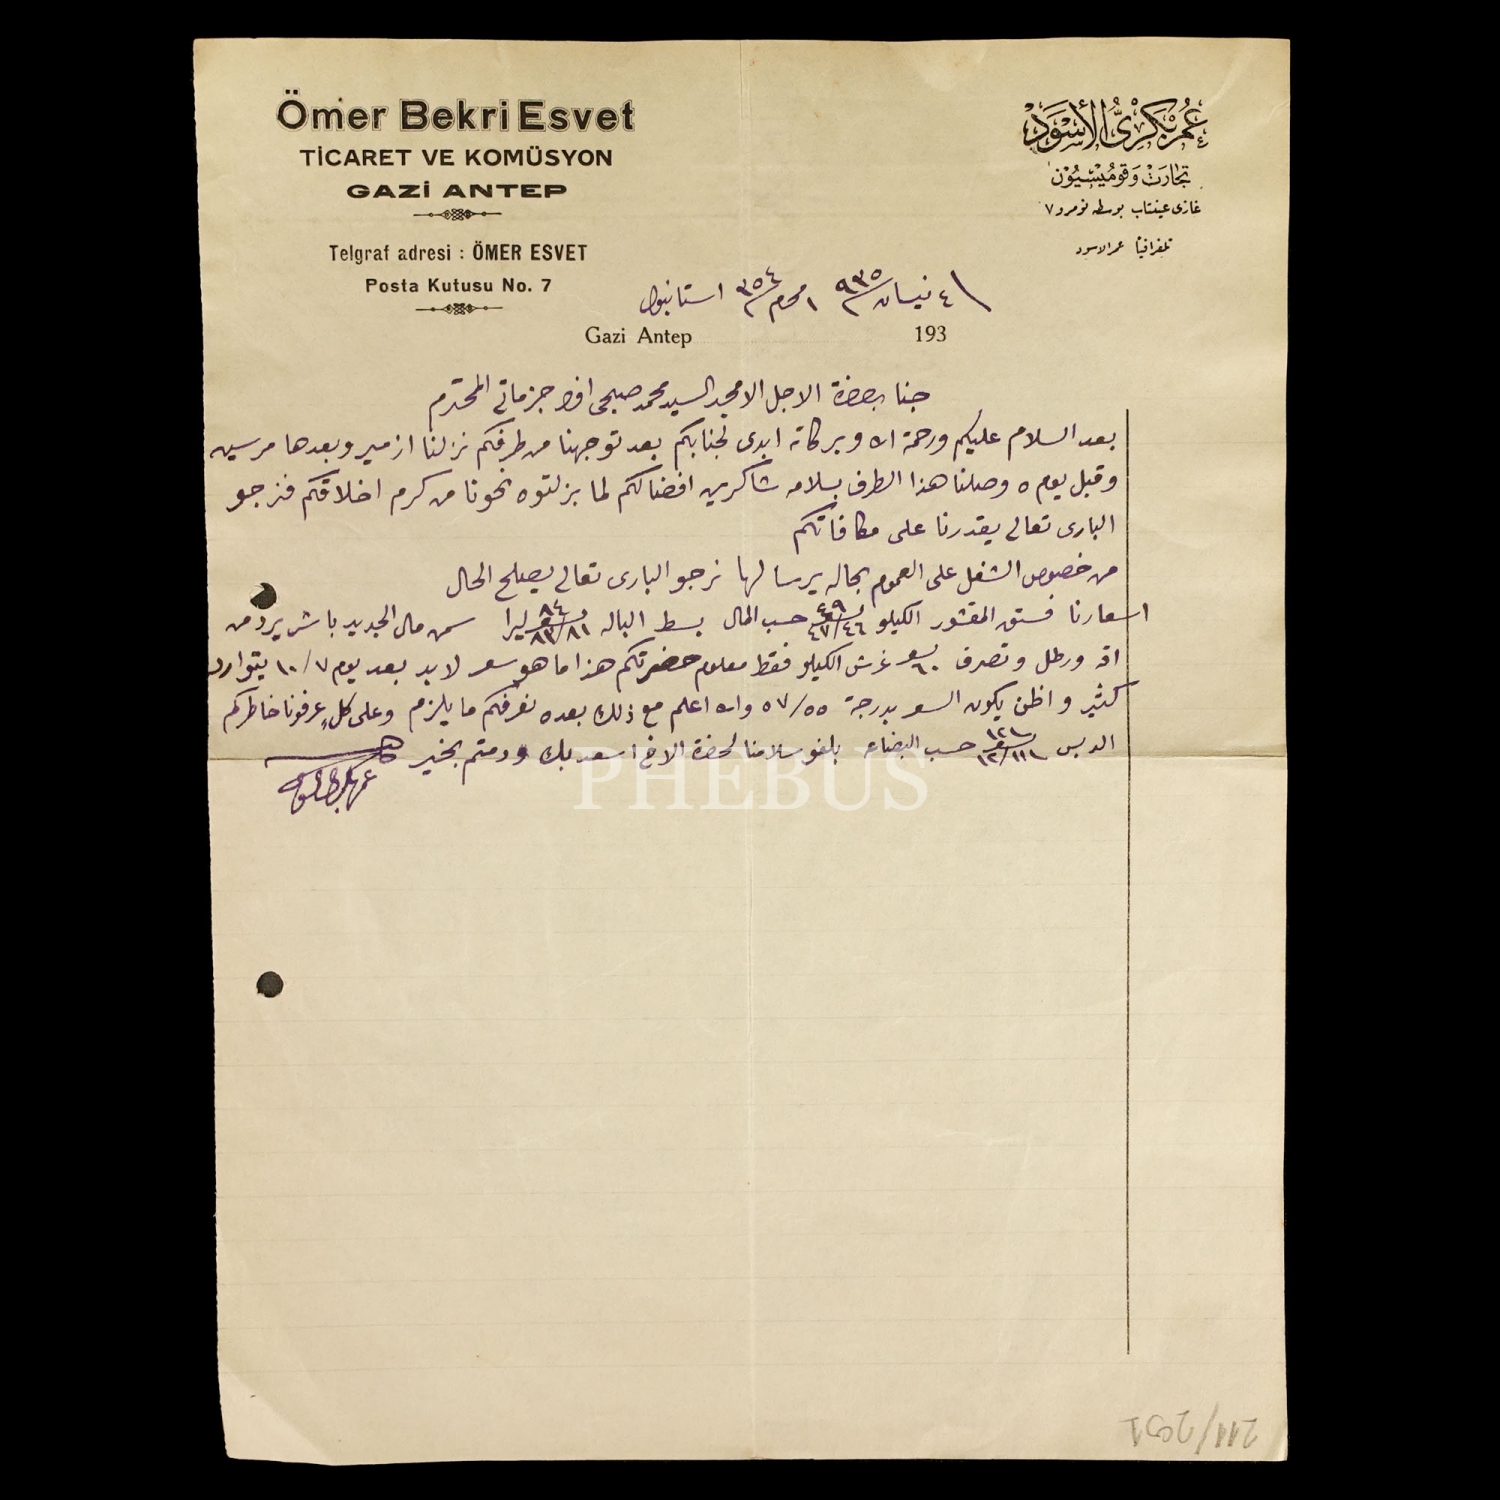 Ömer Bekri Esvet
TİCARET VE KOMÜSYON
GAZİ ANTEP
Telgraf adresi : ÖMER ESVET
Posta Kutusu No. 7
عمر بكرى الأسود
تجارت وقوميسيون
غازى عينتاب پوسطه نومرو ٧
تلغرافيا عمر الاسود
٤ نيسان ٩٣٥ ١ محرم ٣٥٤ استانبول
Gazi Antep 193
جناب حضرة الاجل الامجد السيد محمد صبحى افند جزماتي المحترم
بعد السلام عليكم ورحمة الله وبركاته ابدى لجنابكم بعد توجهنا من طرفكم نزلنا ازمير وبعدها مرسين
وقبل يوم ٥ وصلنا هذا الطرف بسلامه شاكرين افضالكم لما بزلتوه نحونا من كرم اخلاقكم فنرجو
البارى تعالى يقدرنا على مكافاتكم
من خصوص الشغل على العموم بحاله يرسا لها نرجو البارى تعالى يصلح الحال
اسعارنا فستق المقشور الكيلو ٤٩ ٤٧/٤٦ حسب المال بسط الباله ٨٤ ٨٣/٨١ ليرا سمن مال الجديد باشر يرد من
اقه ورطل وتصرف بسعر ٦٠ غرش الكيلو فقط معلوم حضرتكم هذا ما هو سعر لابد بعد يوم ١٠/٧ يتوارد
كثير واظن يكون السعر بدرجة ٥٧/٥٥ والله اعلم مع ذلك بعده نعرفكم ما يلزم وعلى كل عرفونا خاطركم
الدبس ١٢/١١١ حسب البضاعه بلغو سلامنا لحضرة الاخ اسعد بك ودمتم بخير
PHEBUS